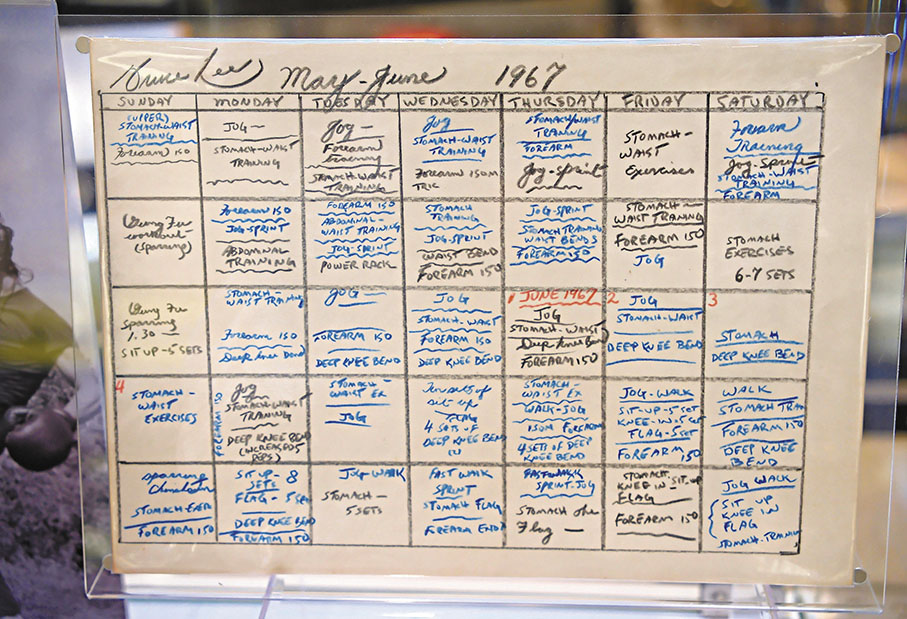 Bruce Lee May-June 1967
SUNDAY MONDAY TUESDAY WEDNESDAY THURSDAY FRIDAY SATURDAY
(UPPER)
STOMACH-WAIST
TRAINING
Forearm 150
JOG—
STOMACH-WAIST
TRAINING
Jog—
Forearm
training
STOMACH-WAIST
TRAINING
Jog
STOMACH-WAIST
TRAINING
Forearm ISOM
TRIC
STOMACH/WAIST
TRAINING
FOREARM
Jog-sprint
STOMACH-
WAIST
Exercises
Forearm
Training
Jog-Sprint
STOMACH-WAIST
TRAINING
FOREARM
Gung Fu
workout
(sparring)
Forearm 150
JOG-SPRINT
ABDOMINAL
TRAINING
FOREARM 150
ABDOMINAL-
WAIST TRAINING
JOG-SPRINT
POWER RACK
STOMACH
TRAINING
JOG-SPRINT
WAIST BEND
FOREARM 150
JOG-SPRINT
STOMACH TRAINING
WAIST BENDS
FOREARM 150
STOMACH-
WAIST TRAINING
FOREARM 150
JOG
STOMACH
EXERCISES
6-7 SETS
Gung Fu
Sparring
1.30
SIT UP-5 SETS
STOMACH-
WAIST TRAINING
Forearm 150
Deep Knee Bend
JOG—
FOREARM 150
DEEP KNEE BEND
JOG
STOMACH-WAIST
FOREARM 150
DEEP KNEE BEND
1 JUNE 1967
JOG
STOMACH-WAIST
Deep Knee Bend
FOREARM 150
2 JOG
STOMACH-WAIST
DEEP KNEE BEND
3
STOMACH
DEEP KNEE BEND
4
STOMACH-
WAIST
EXERCISES
FOREARM 150
Jog
STOMACH-WAIST
TRAINING
DEEP KNEE BEND
(INCREASED 5
REPS)
STOMACH-
WAIST EX
JOG
sets of
sit-up
FLAG
4 SETS OF
DEEP KNEE BEND
STOMACH-
WAIST EX
WALK-JOG
ISOM FOREARM
4 SETS OF DEEP
KNEE BEND
JOG-WALK
SIT-UP-5 SET
KNEE-IN-5 SET
FLAG-5 SET
FOREARM 150
WALK
STOMACH TRAI
FOREARM 150
DEEP KNEE
BEND
Sparring
STOMACH
FOREARM 150
SIT UP- 8
SETS
FLAG-5 SETS
DEEP KNEE BEND
FOREARM 150
Jog-WALK
STOMACH-
5 SETS
FAST WALK
SPRINT
STOMACH FLAG
FOREARM
FAST WALK
SPRINT-JOG
STOMACH
Flag—
STOMACH
KNEE IN-SIT-UP
FLAG
FOREARM 150
JOG WALK
SIT UP
KNEE IN
FLAG
STOMACH-TRAINING